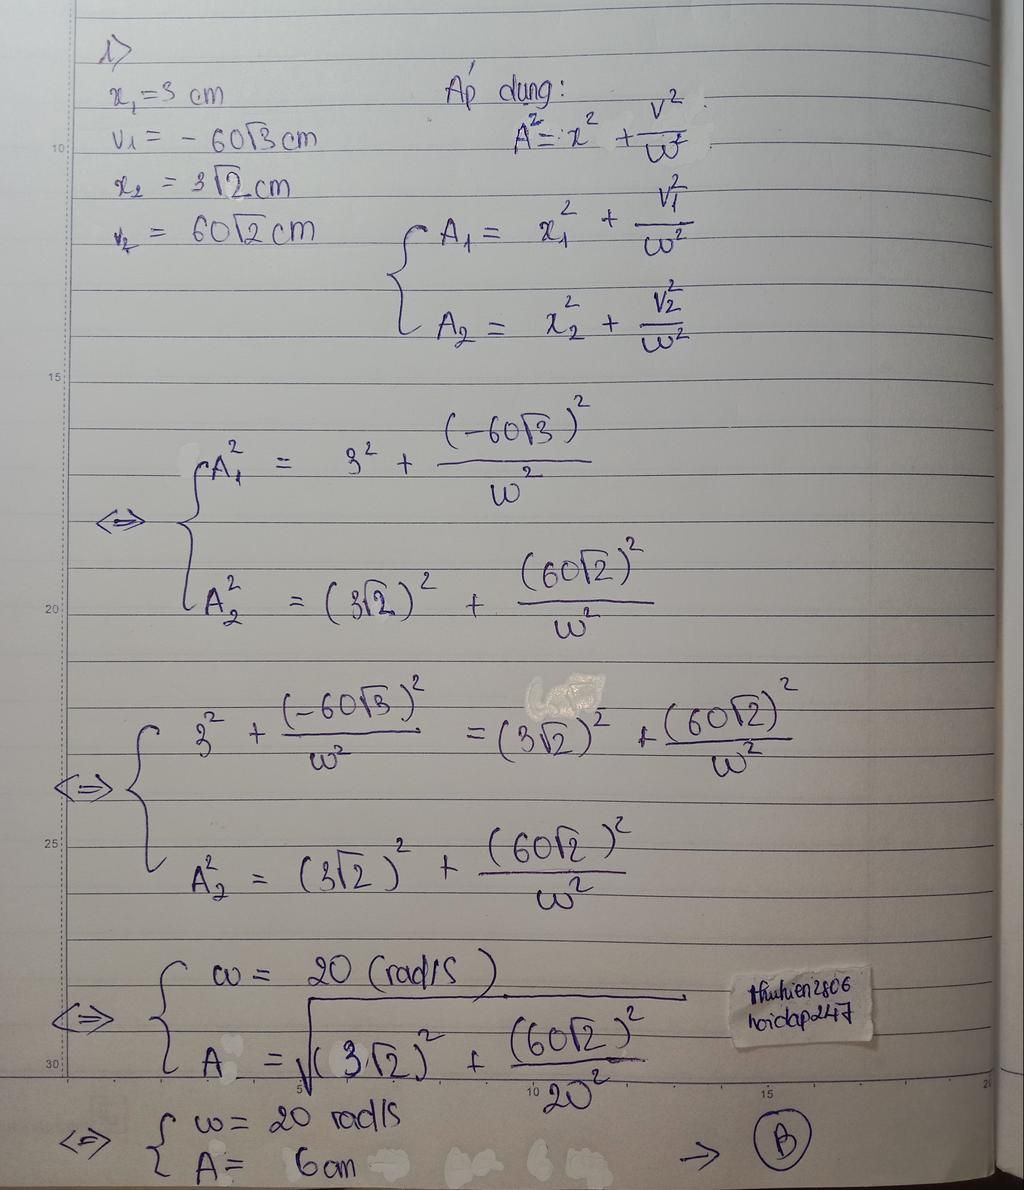 1>
x₁ = 3 cm
v₁ = - 60√3 cm
x₂ = 3√2 cm
v₂ = 60√2 cm
Áp dụng:
A² = x² + v²/ω²
{ A₁ = x₁² + v₁²/ω²
A₂ = x₂² + v₂²/ω²
<=> { A₁² = 3² + (-60√3)²/ω²
A₂² = (3√2)² + (60√2)²/ω²
<=> { 3² + (-60√3)²/ω² = (3√2)² + (60√2)²/ω²
A₂² = (3√2)² + (60√2)²/ω²
<=> { ω = 20 (rad/s)
A = √((3√2)² + (60√2)²/20²)
<=> { ω = 20 rad/s
A = 6cm → B
thuhien2806
hoidap247
10
15
20
25
30
5
10
15
20